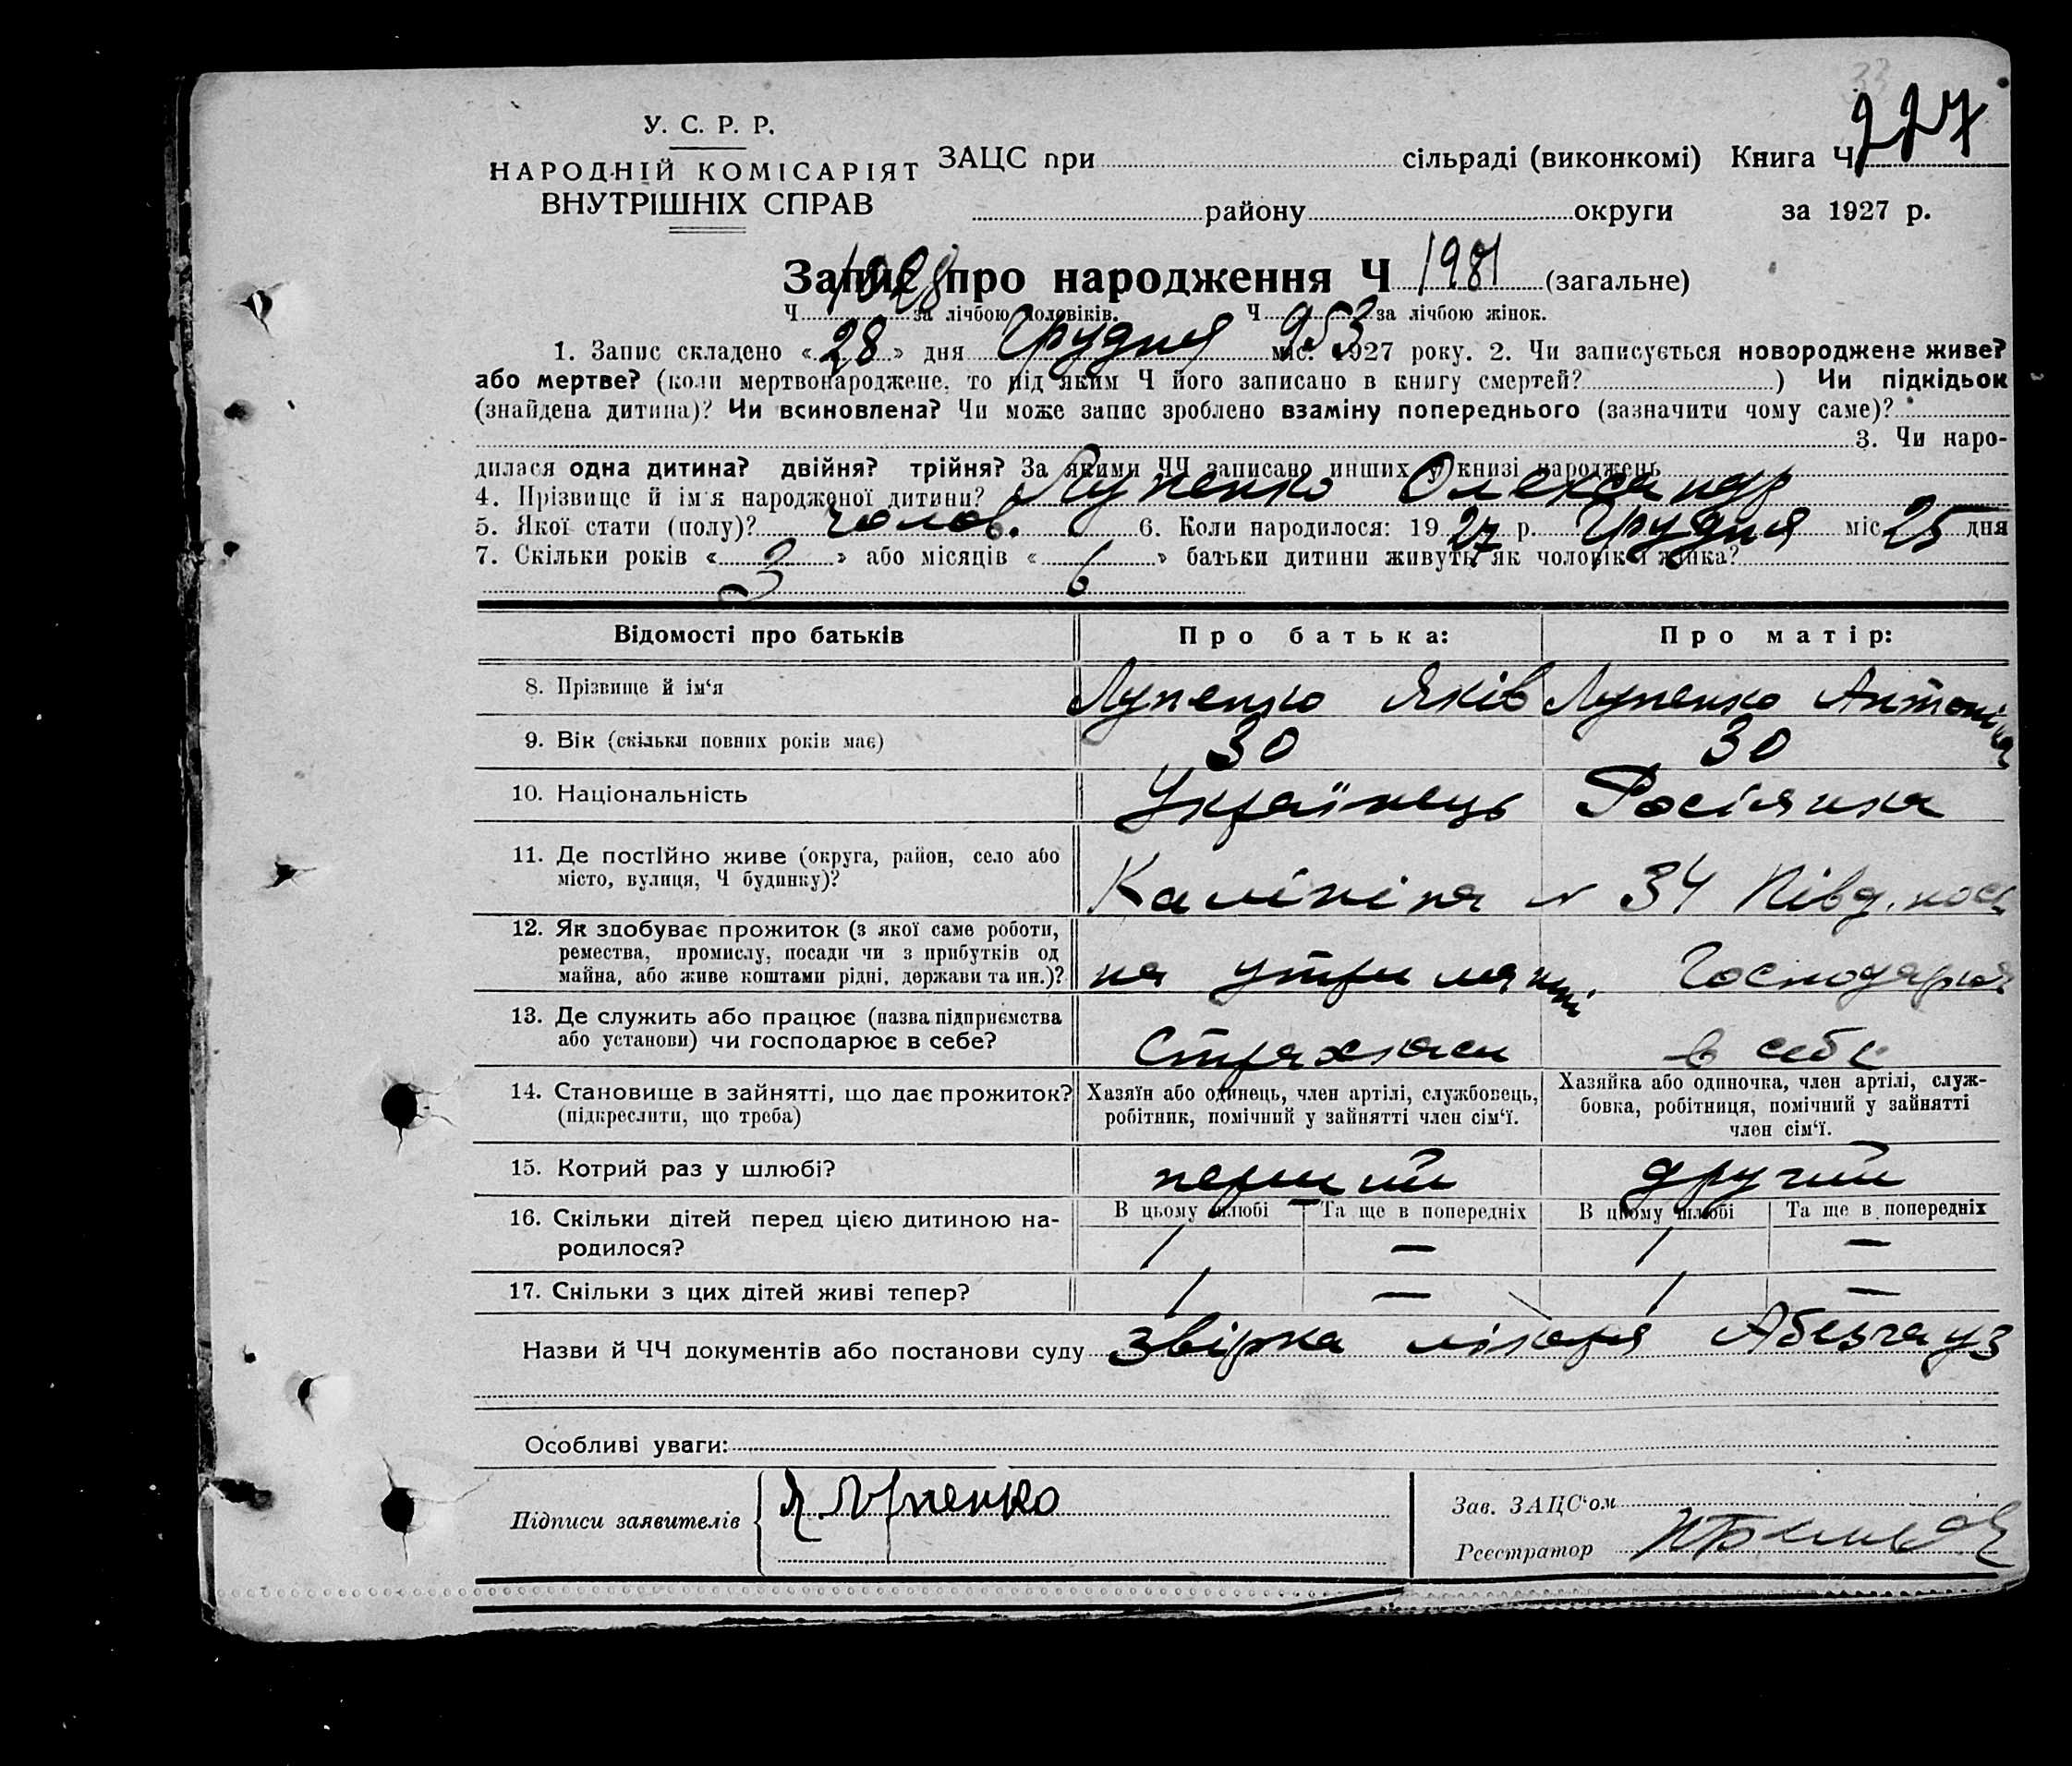 33
У. С. Р. Р.
НАРОДНІЙ КОМІСАРІЯТ
ВНУТРІШНІХ СПРАВ
ЗАЦС при сільраді (виконкомі) Книга Ч 227
району округи за 1927 р.
Запис про народження Ч 1981 (загальне)
Ч 1028 за лічбою чоловіків. Ч 953 за лічбою жінок.
1. Запис складено « 28 » дня Грудня міс. 1927 року. 2. Чи записується новороджене живе?
або мертве? (коли мертвонароджене, то під яким Ч його записано в книгу смертей? ) Чи підкідьок
(знайдена дитина)? Чи всиновлена? Чи може запис зроблено взаміну попереднього (зазначити чому саме)?
3. Чи наро-
дилася одна дитина? двійня? трійня? За якими ЧЧ записано инших у книзі народжень
4. Прізвище й ім'я народженої дитини? Лупенко Олександр
5. Якої стати (полу)? чолов. 6. Коли народилося: 1927 р. Грудня міс 25 дня
7. Скільки років « 3 » або місяців « 6 » батьки дитини живуть як чоловік і жінка?
Відомості про батьків Про батька: Про матір:
8. Прізвище й ім'я Лупенко Яків Лупенко Антоніна
9. Вік (скільки повних років має) 30 30
10. Національність Українець Росіянка
11. Де постійно живе (округа, район, село або
місто, вулиця, Ч будинку)? Калініна № 34 Півд. пос
12. Як здобуває прожиток (з якої саме роботи,
ремества, промислу, посади чи з прибутків од
майна, або живе коштами рідні, держави та ин.)? на утриманні Господарка
13. Де служить або працює (назва підприємства
або установи) чи господарює в себе? Страхкаси в себе
14. Становище в зайнятті, що дає прожиток?
(підкреслити, що треба)
Хазяїн або одинець, член артілі, службовець,
робітник, помічний у зайнятті член сім'ї.
Хазяйка або одиночка, член артілі, служ-
бовка, робітниця, помічний у зайнятті
член сім'ї.
15. Котрий раз у шлюбі? перший другий
16. Скільки дітей перед цією дитиною на-
родилося?
В цьому шлюбі Та ще в попередніх В цьому шлюбі Та ще в попередніх
1 — 1 —
17. Скільки з цих дітей живі тепер? 1 — 1 —
Назви й ЧЧ документів або постанови суду звірка лікаря Абезгауз
Особливі уваги:
Підписи заявителів Я Лупенко
Зав. ЗАЦС'ом
Реєстратор